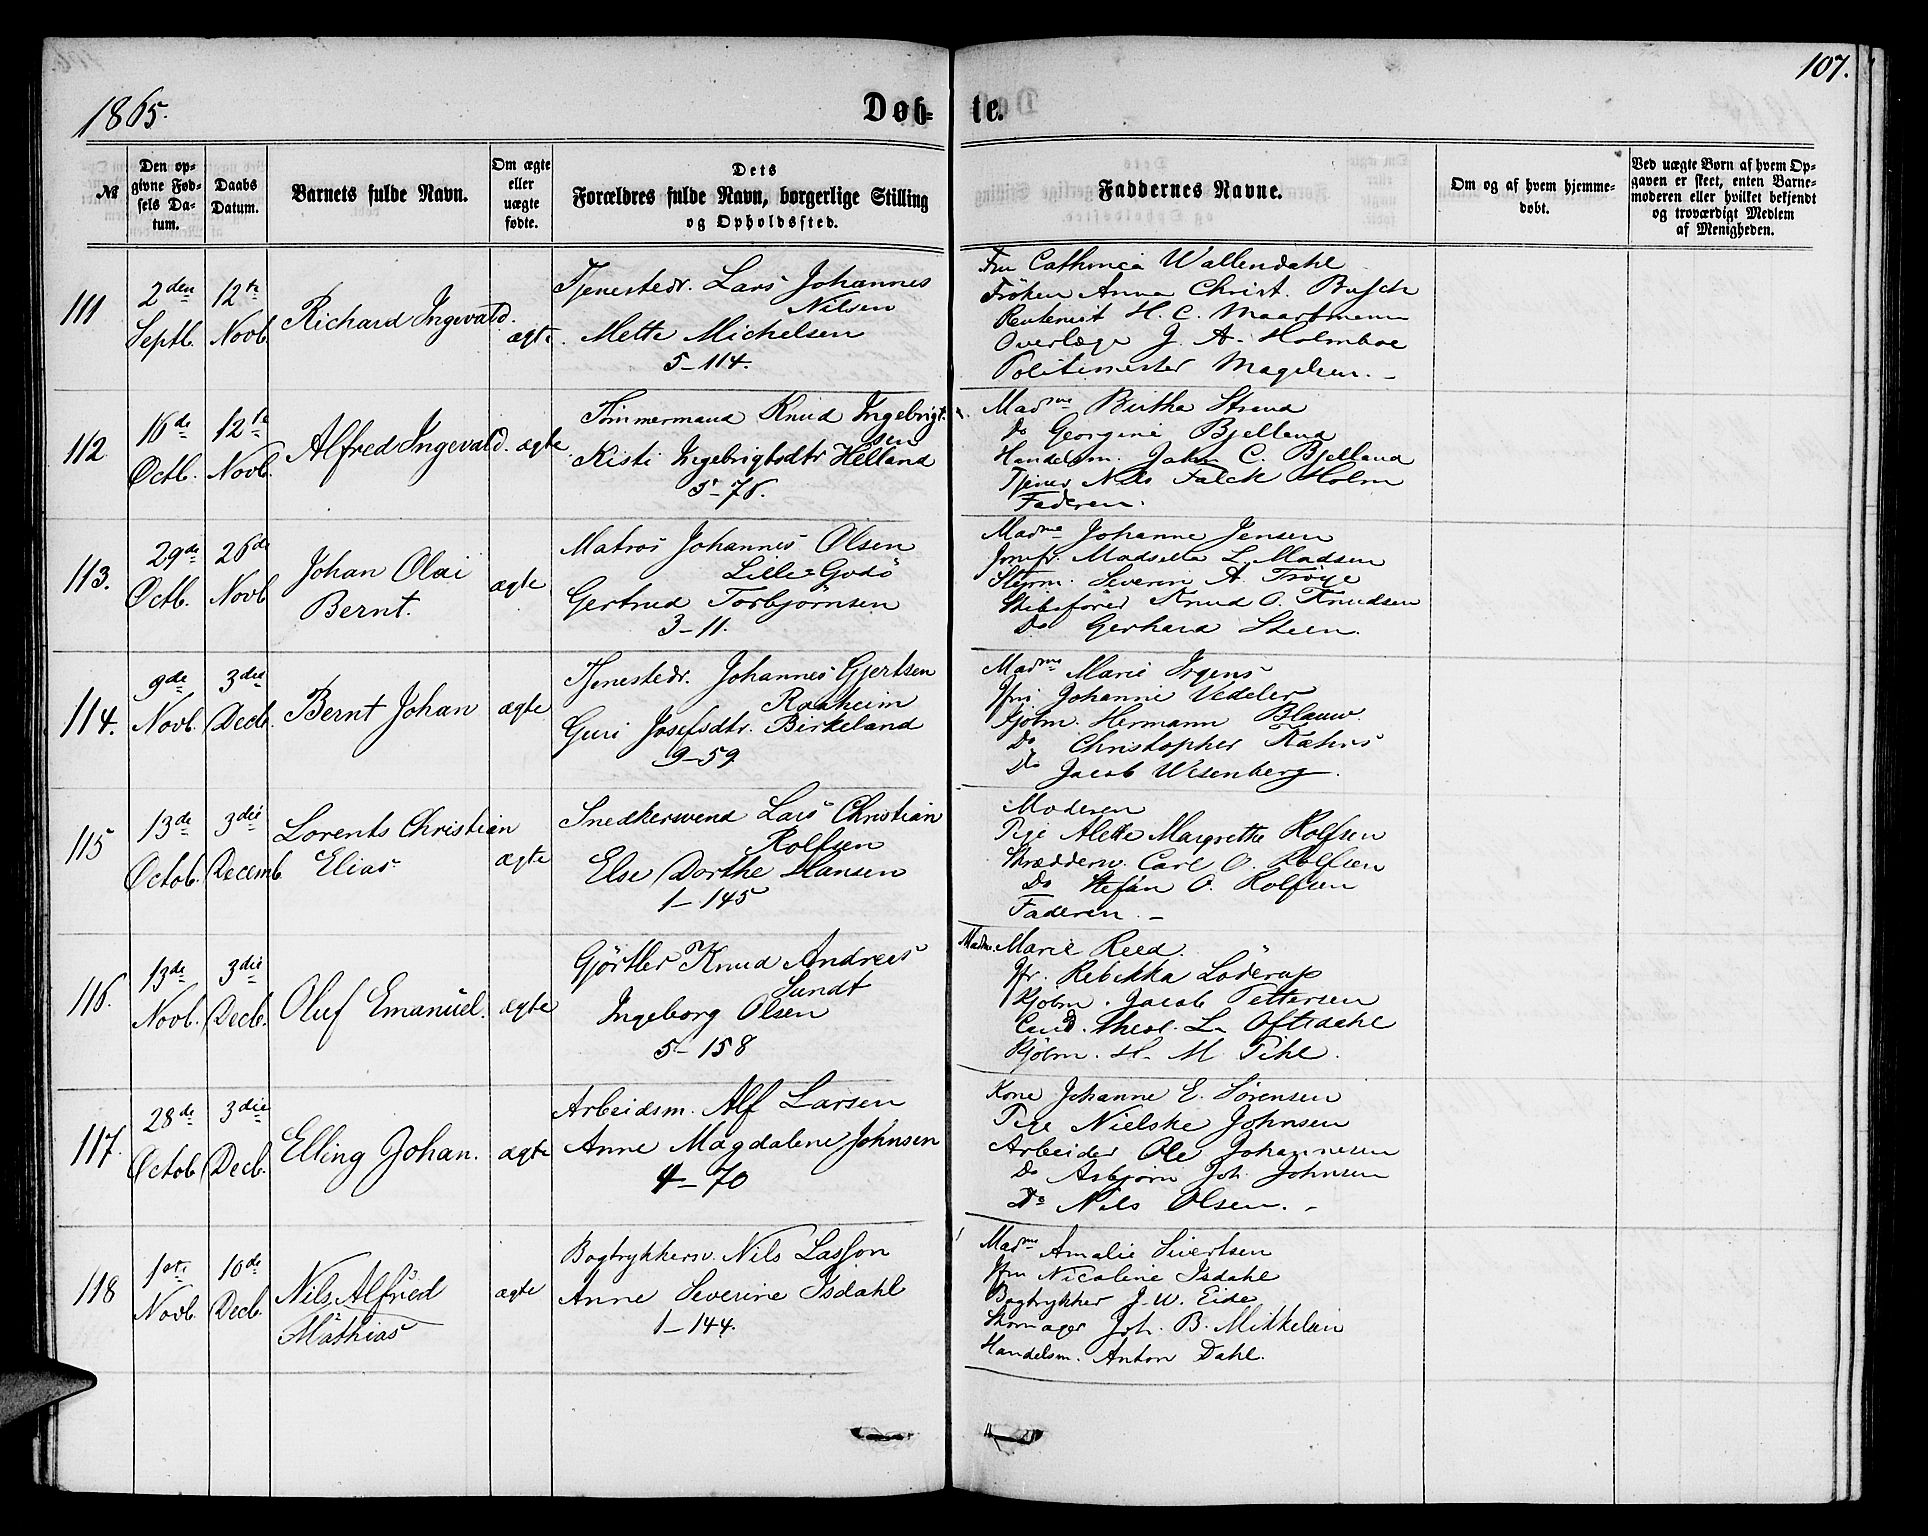 107.
1865.
Døb-
te.
№
Den op-
givne Fød-
sels Da-
tum.
Daabs
Datum.
Barnets fulde Navn.
Om ægte
eller
uægte
fødte.
Dets
Forældres fulde Navn, borgerlige Stilling
og Opholdssted.
Faddernes Navne.
Om og af hvem hjemme-
døbt.
Ved uægte Børn af hvem Op-
gaven er skeet, enten Barne-
moderen eller hvilket bekjendt
og troværdigt Medlem
af Menigheden.
111
2den
Septb.
12te
Novb.
Richard Ingevald.
ægte.
Tjenestedr. Lars Johannes
Nilsen
Mette Michelsen
5-114.
Fru Cathinca Wallendahl
Fröken Anna Christ. Busch
Rentenist H. C. Maartmann
Overlæge J. A. Holmboe
Politimester Magelsen.
112
16de
Octb.
12te
Novb.
Alfred Ingevald.
ægte
Tømmermand Knud Ingebrigt-
sen
Kisti Ingebrigtsdtr Helland
5-76.
Madme Birtha Strand
Do Georgine Bjelland
Handelsm. John C. Bjelland
Tjener Nils Falck Holm
Faderen.
113.
29de
Octb.
26de
Novb
Johan Olai
Bernt.
ægte
Matros Johannes Olsen
Lille-Godö
Gertrud Torbjørnsen
3-11.
Madme Johanne Jensen
Jomfr. Madselle L. Madsen
Styrm. Severin A. Tröye
Skibsförer Knud O. Knudsen
Do Gerhard Steen.
114.
9de
Novb.
3die
Decb.
Bernt Johan
ægte
Tjenestedr. Johannes Gjertsen
Raaheim
Guri Josefsdtr. Birkeland
9-59
Madme Marie Irgens
Jfri. Johanne Vedeler
Kjöbm. Hermann Blauw.
Do Christopher Kahrs
Do Jacob Wesenberg.
115
13de
Octob.
3die
Decemb
Lorents Christian
Elias
ægte
Snedkersvend Lars Christian
Rolfsen
Else Dorthe Hansen
1-145
Moderen
Pige Alette Margrethe Rolfsen
Skræddersv. Carl O. Rolfsen
Do Stefan O. Rolfsen
Faderen.
116.
13de
Novb.
3die
Decb.
Oluf Emanuel.
ægte
Gjörtler Knud Andreas
Sundt
Ingeborg Olsen
5-158
Madm. Marie Reed.
Jfr. Rebekka Löderup
Kjöbm. Jacob Pettersen
Cand. theol. L. Oftedahl
Kjöbm. H. M. Pihl.
117.
28de
Octob.
3die
Decb.
Elling Johan.
ægte
Arbeidsm. Alf Larsen
Anne Magdalene Johnsen
4-70
Kone Johanne E. Sørensen
Pige Nielske Johnsen
Arbeider Ole Johannesen
Do Asbjørn Joh. Johnsen
Do Nils Olsen.
118
1ste
Novb.
10de
Decb.
Nils Alfred
Mathias
ægte
Bogtrykkersv. Nils Lasson
Anne Severine Isdahl
1-144.
Madme Amalie Sivertsen
Jfru Nicoline Isdahl
Bogtrykker J. W. Eide
Skomager Joh. B. Mikkelsen
Handelsm. Anton Dahl.